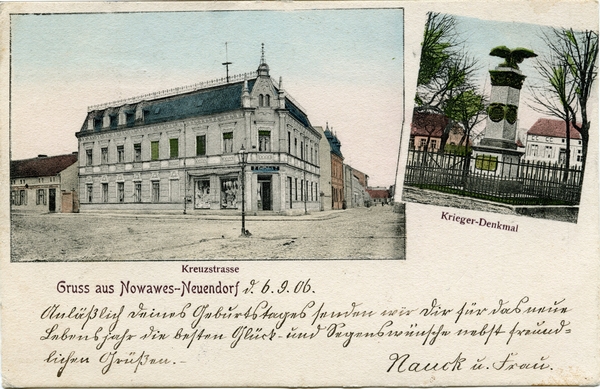 Krieger-Denkmal
Kreuzstrasse
Gruss aus Nowawes-Neuendorf d. 6. 9. 06.
Anläßlich deines Geburtstages senden wir Dir für das neue
Lebensjahr die besten Glück- und Segenswünsche nebst freund-
lichen Grüßen.-
Nauck u. Frau.